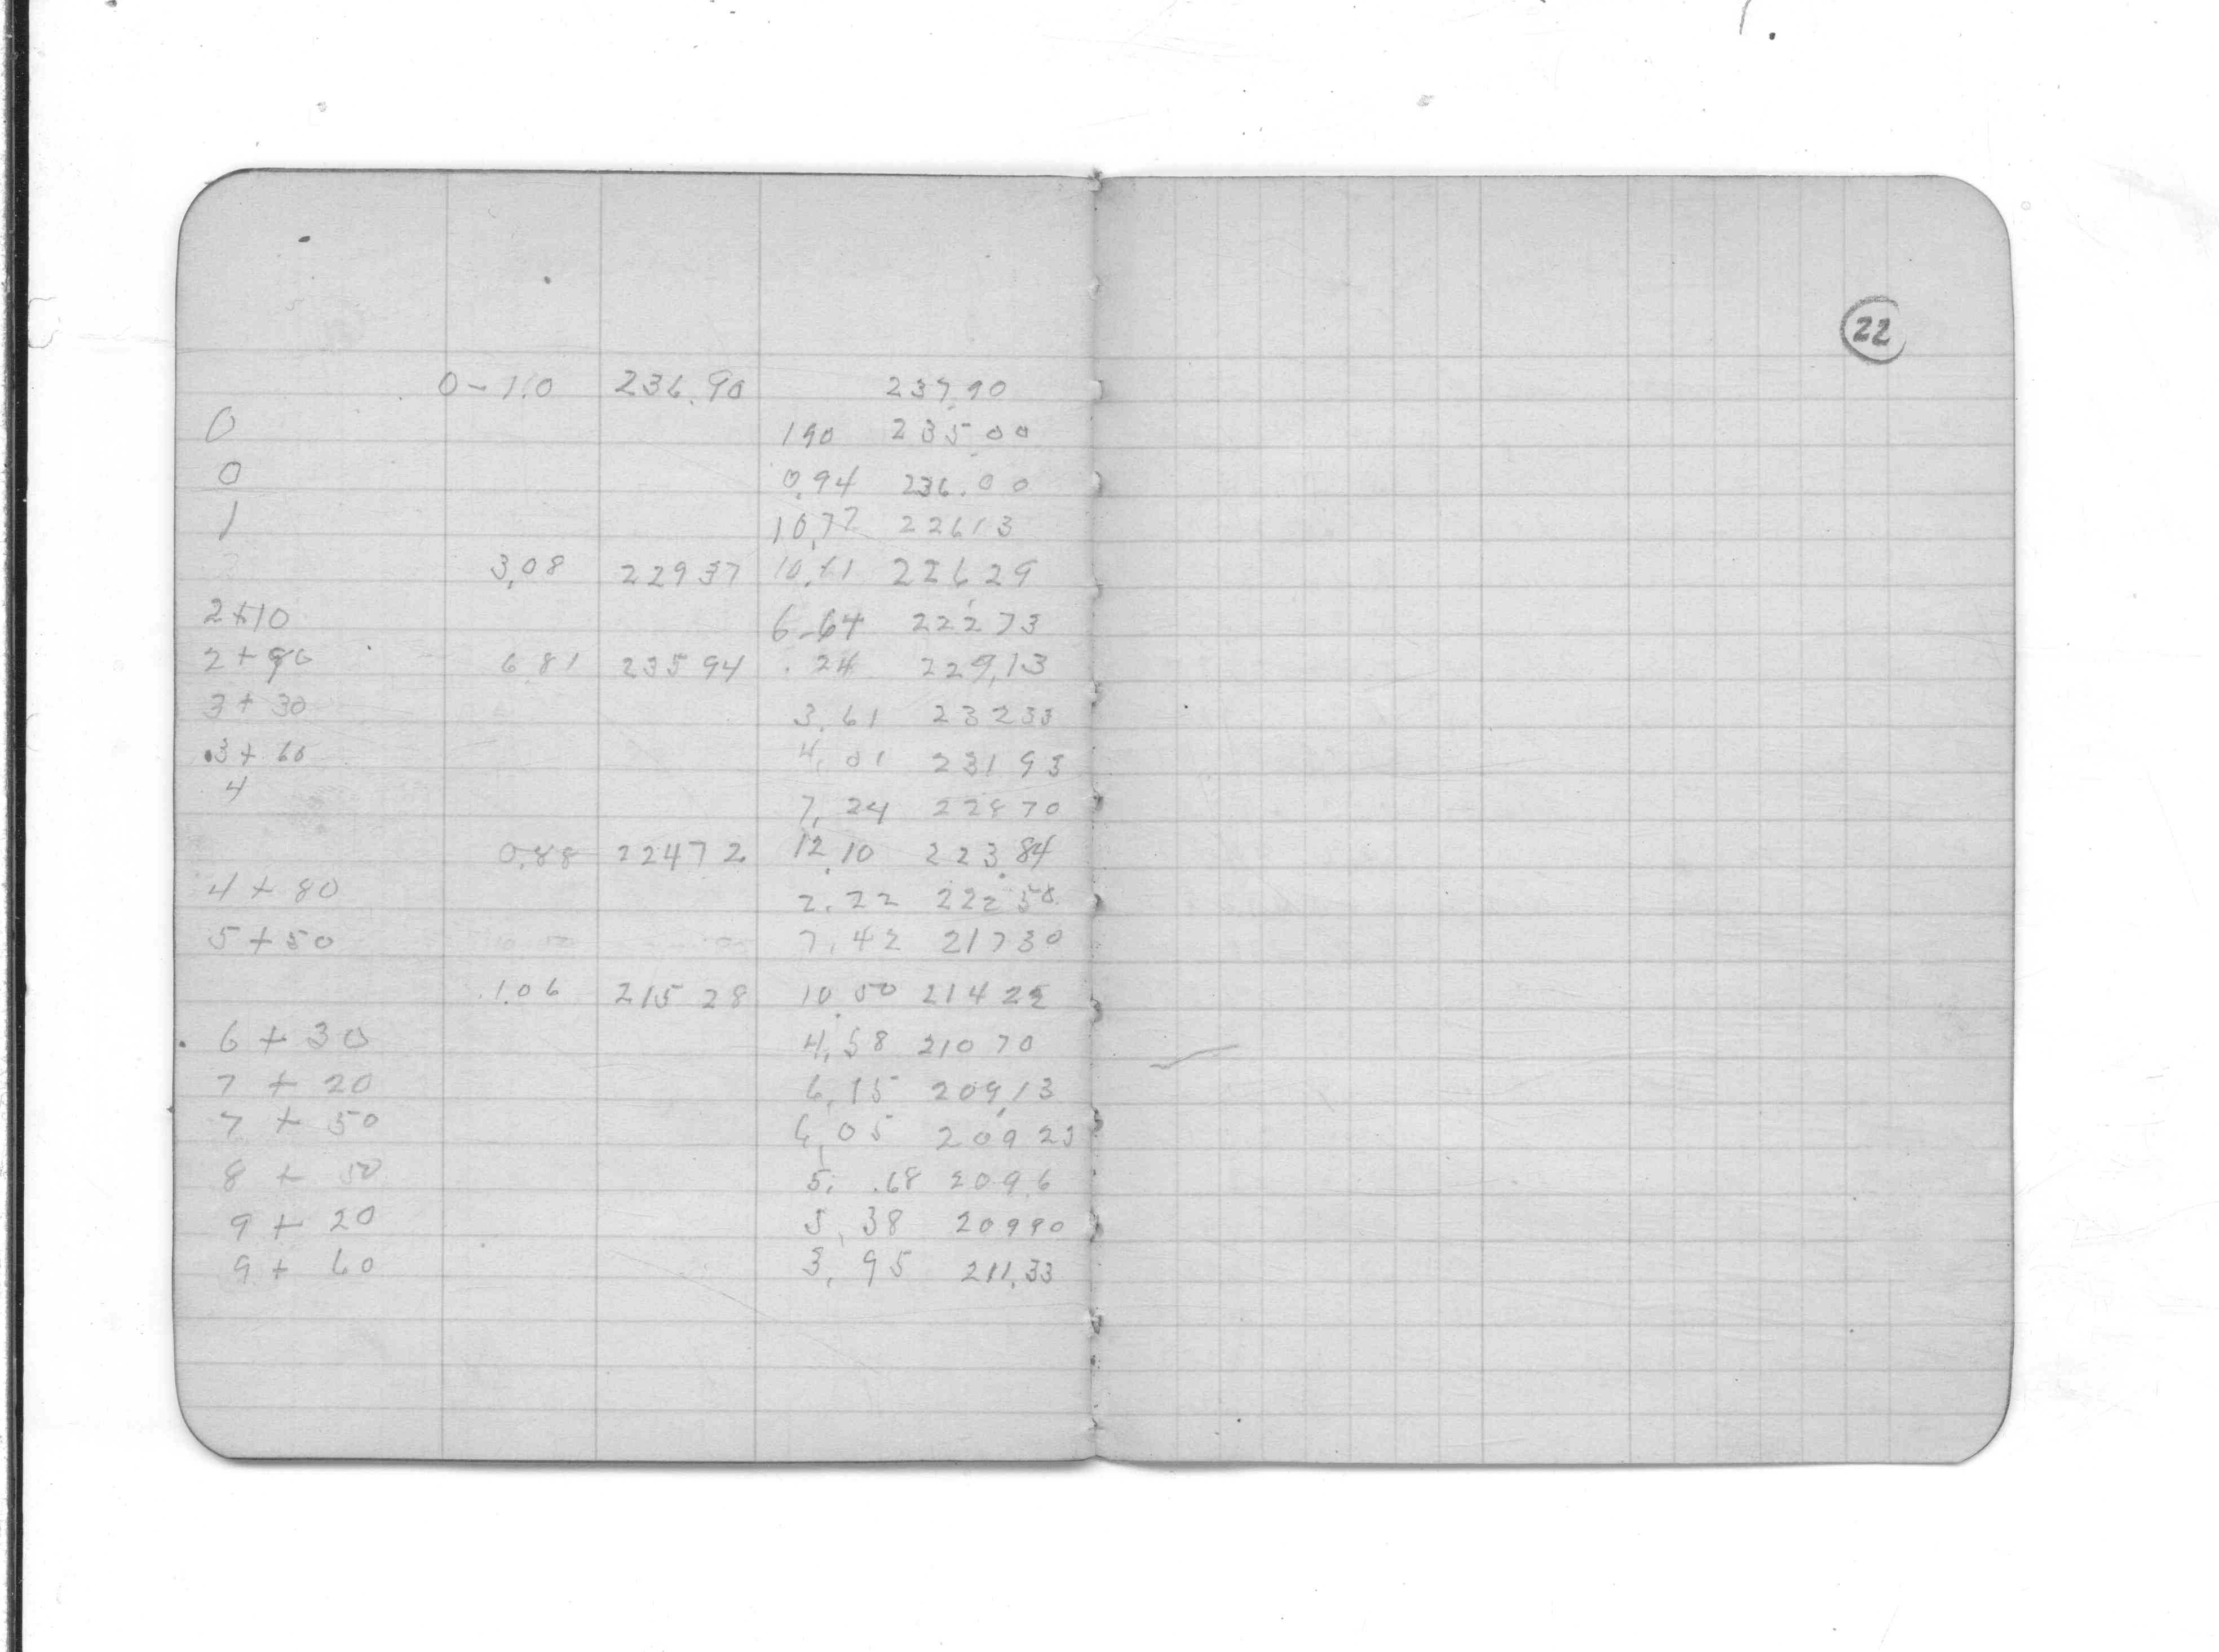 22
0 - 1.0 236.90 237.90
0 190 235 00
0 0.94 236.00
1 10,77 226 13
3,08 229 37 10,61 226 29
2+10 6-64 222 73
2+90 6 81 235 94 .24 229,13
3+ 30 3,61 232 33
3+ 60 4,01 231 93
4 7,24 228 70
0,88 22472 12.10 223.84
4 + 80 2.22 222 50
5+50 7.42 217 30
1.06 215 28 10.50 214 22
6 + 30 4,58 210 70
7 + 20 6,15 209,13
7 + 50 6,05 209 23
8 + 50 5. .68 209.6
9 + 20 5,38 209 90
9 + 60 3,95 211,33